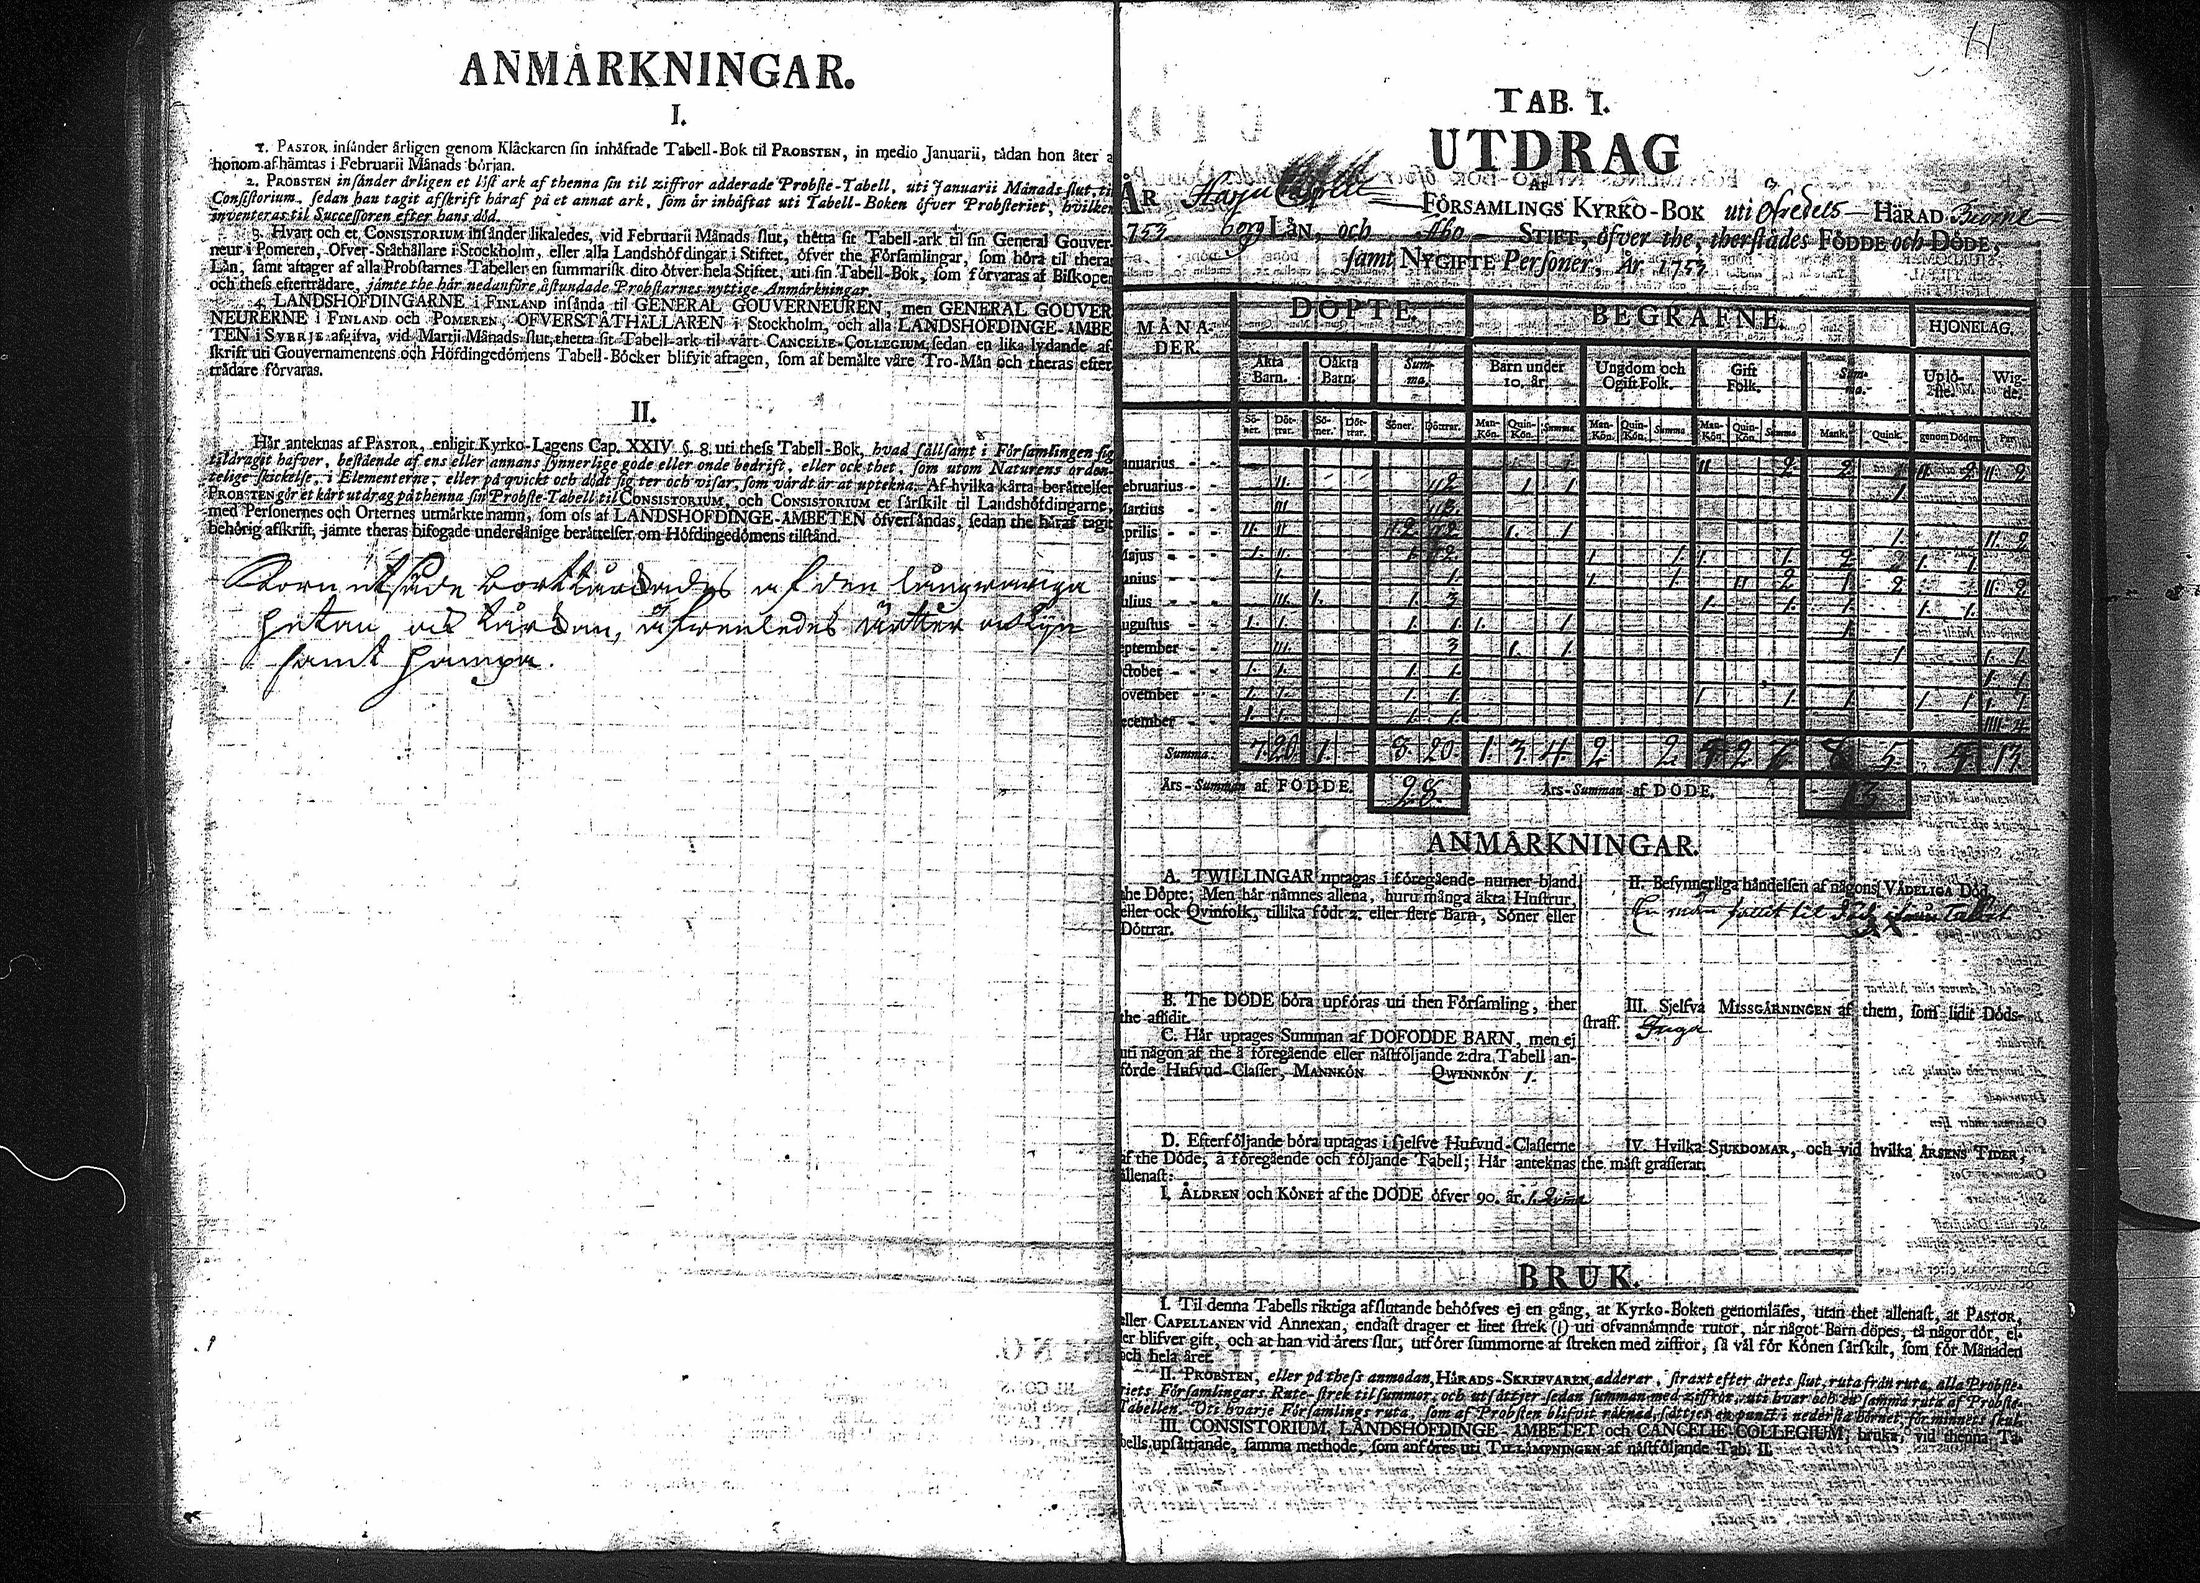 ANMÄRKNINGAR.
I.
1. PASTOR insänder årligen genom Kläckaren sin inhäftade Tabell-Bok til PROBSTEN, in medio Januarii, tådan hon åter
honom afhämtas i Februarii Månads början.
2. PROBSTEN insänder årligen et löst ark af thenna sin til ziffror adderade Probste-Tabell, uti Januarii Månads slut, til
Consistorium, sedan han tagit afskrift häraf på et annat ark, som är inhäftat uti Tabell-Boken öfver Probsteriet, hvilken
inventeras til Successoren efter hans död.
3. Hvart och et CONSISTORIUM insänder likaledes, vid Februarii Månads slut, thetta sit Tabell-ark til sin General Gouver-
neur i Pomeren, Öfver-Ståthållare i Stockholm, eller alla Landshöfdingar i Stiftet, öfver the Församlingar, som höra til theras
Län, samt aftager af alla Probstarnes Tabeller en summarisk dito öfver hela Stiftet, uti sin Tabell-Bok, som förvaras af Biskopen
och thess efterträdare, jämte the här nedanföre åstundade Probstarnes nyttige Anmärkningar.
4. LANDSHÖFDINGARNE i FINLAND insända til GENERAL GOUVERNEUREN, men GENERAL GOUVER
NEURERNE i FINLAND och POMEREN, ÖFVERSTÅTHÅLLAREN i Stockholm, och alla LANDSHÖFDINGE-ÄMBE
TEN i SVERJE afgifva, vid Martii Månads slut, thetta sit Tabell-ark til vårt CANCELIE-COLLEGIUM, sedan en lika lydande af-
skrift uti Gouvernamentens och Höfdingedömens Tabell-Böcker blifvit aftagen, som af bemälte våre Tro-Män och theras efter-
trädare förvaras.
II.
Här anteknas af PASTOR, enligit Kyrko-Lagens Cap. XXIV §. 8. uti thess Tabell-Bok, hvad sällsamt i Församlingen sig
tildragit hafver, bestående af ens eller annans synnerlige gode eller onde bedrift, eller ock thet, som utom Naturens orden-
telige skickelse, i Elementerne, eller på qvickt och dödt sig ter och visar, som värdt är at uptekna. Af hvilka kårta berättelser
PROBSTEN gör et kårt utdrag på thenna sin Probste-Tabell til CONSISTORIUM, och CONSISTORIUM et särskilt til Landshöfdingarne,
med Personernes och Orternes utmärkte namn, som oss af LANDSHÖFDINGE-ÄMBETEN öfversändas, sedan the häraf tagit
behörig afskrift, jämte theras bifogade underdånige berättelser om Höfdingedömens tilstånd.
Korn utsäde borttorkades af den långwariga
hetan och torkan, äfwenledes ärtter och lijn
samt hampa.
TAB. I.
UTDRAG
AF
ÅR
FÖRSAMLINGS KYRKO-BOK uti Öfredels HÄRAD Biörne-
1753. borg LÄN, och Åbo STIFT, öfver the, therstädes FÖDDE och DÖDE,
samt NYGIFTE Personer, År 1753
MÅNA-
DER. DÖPTE. BEGRAFNE. HJONELAG.
Äkta
Barn. Oäkta
Barn. Sum-
ma. Barn under
10. år. Ungdom och
Ogift Folk. Gift
Folk. Sum-
ma. Uplö-
ste. Wig-
de.
Sö-
ner. Döt-
trar. Sö-
ner. Döt-
trar. Söner. Döttrar. Man-
Kön. Quin-
Kön. Summa Man-
Kön. Quin-
Kön. Summa Man-
Kön. Quin-
Kön. Summa Mank. Quink. genom Döden. Par.
anuarius - - II 2. 2. II 2 II. 2
ebruarius - - II. 2 1. 1 1.
Martius - - III 3.
prilis - - II. II 2. 2. 1. 1 1. II. 2
Majus - - 1. II. 1. 2. 1 1 1. 1. 2 2 1. 1.
unius - - 1. 1. 1. 1. II 2 1. 2. II. 2
ulius - - III. 1. 1. 3 1. 1. 1. 1. 1.
ugustus - - 1. 1. 1. 1. 1. 1 1.
eptember - - III. 3 1. 1 1. 1. 1
ctober - - 1. 1. 1. 1. 1. 1
ovember - - 1. 1. 1. 1. 1. 1. 1. 1. 1. 1. 1
ecember - - 1. 1. 1. 1. IIII. 4
Summa. 7. 20. 1. - 8. 20. 1. 3. 4. 2. 2. 2 6. 8. 5. 13.
Års-Summan af FÖDDE. 28. Års-Summan af DÖDE. 13
ANMÄRKNINGAR.
A. TWILLINGAR uptagas i föregående numer bland
the Döpte; Men här nämnes allena, huru många äkta Hustrur,
eller ock Qvinfolk, tillika födt 2. eller flere Barn, Söner eller
Döttrar.
B. The DÖDE böra upföras uti then Församling, ther
the afsidit.
C. Här uptages Summan af DÖFÖDDE BARN, men ej
uti någon af the å föregående eller nästföljande 2:dra Tabell an-
förde Hufvud-Classer, MANNKÖN QWINNKÖN 1.
D. Efterföljande böra uptagas i sjelfve Hufvud-Classerne
af the Döde, å föregående och följande Tabell; Här anteknas
allenast:
I. ÅLDREN och KÖNET af the DÖDE öfver 90. år. 1. Qvinna
II. Besynnerliga händelsen af någons VÅDELIGA Död.
En man fallit til död
III. Sjelfva MISSGÄRNINGEN af them, som lidit Döds-
straff. Inga.
IV. Hvilka SJUKDOMAR, och vid hvilka ÅRSENS TIDER,
the mäst grasserat;
BRUK.
I. Til denna Tabells riktiga afslutande behöfves ej en gång, at Kyrko-Boken genomläses, utan thet allenast, at PASTOR,
eller CAPELLANEN vid Annexan, endast drager et litet strek (I) uti ofvannämnde rutor, när något Barn döpes, tå någor dör, el-
ler blifver gift, och at han vid årets slut, utförer summorne af streken med ziffror, så väl för Könen särskilt, som för Månaden
och hela året.
II. PROBSTEN, eller på thess anmodan, HÄRADS-SKRIFVAREN, adderar, straxt efter årets slut, ruta från ruta, alla Probste-
riets Församlingars Rute-strek til summor, och utsättjer sedan summan med ziffror, uti hvar och en samma ruta af Probste-
Tabellen. Uti hvarje Församlings ruta, som af Probsten blifvit räknad, sättjes en punct i nedersta hörnet, för minnets skul.
III. CONSISTORIUM, LANDSHÖFDINGE-ÄMBETET och CANCELIE-COLLEGIUM, bruka, vid thenna Ta-
bells upsättjande, samma methode, som anföres uti TILLÄMPNINGEN af nästföljande Tab. II.